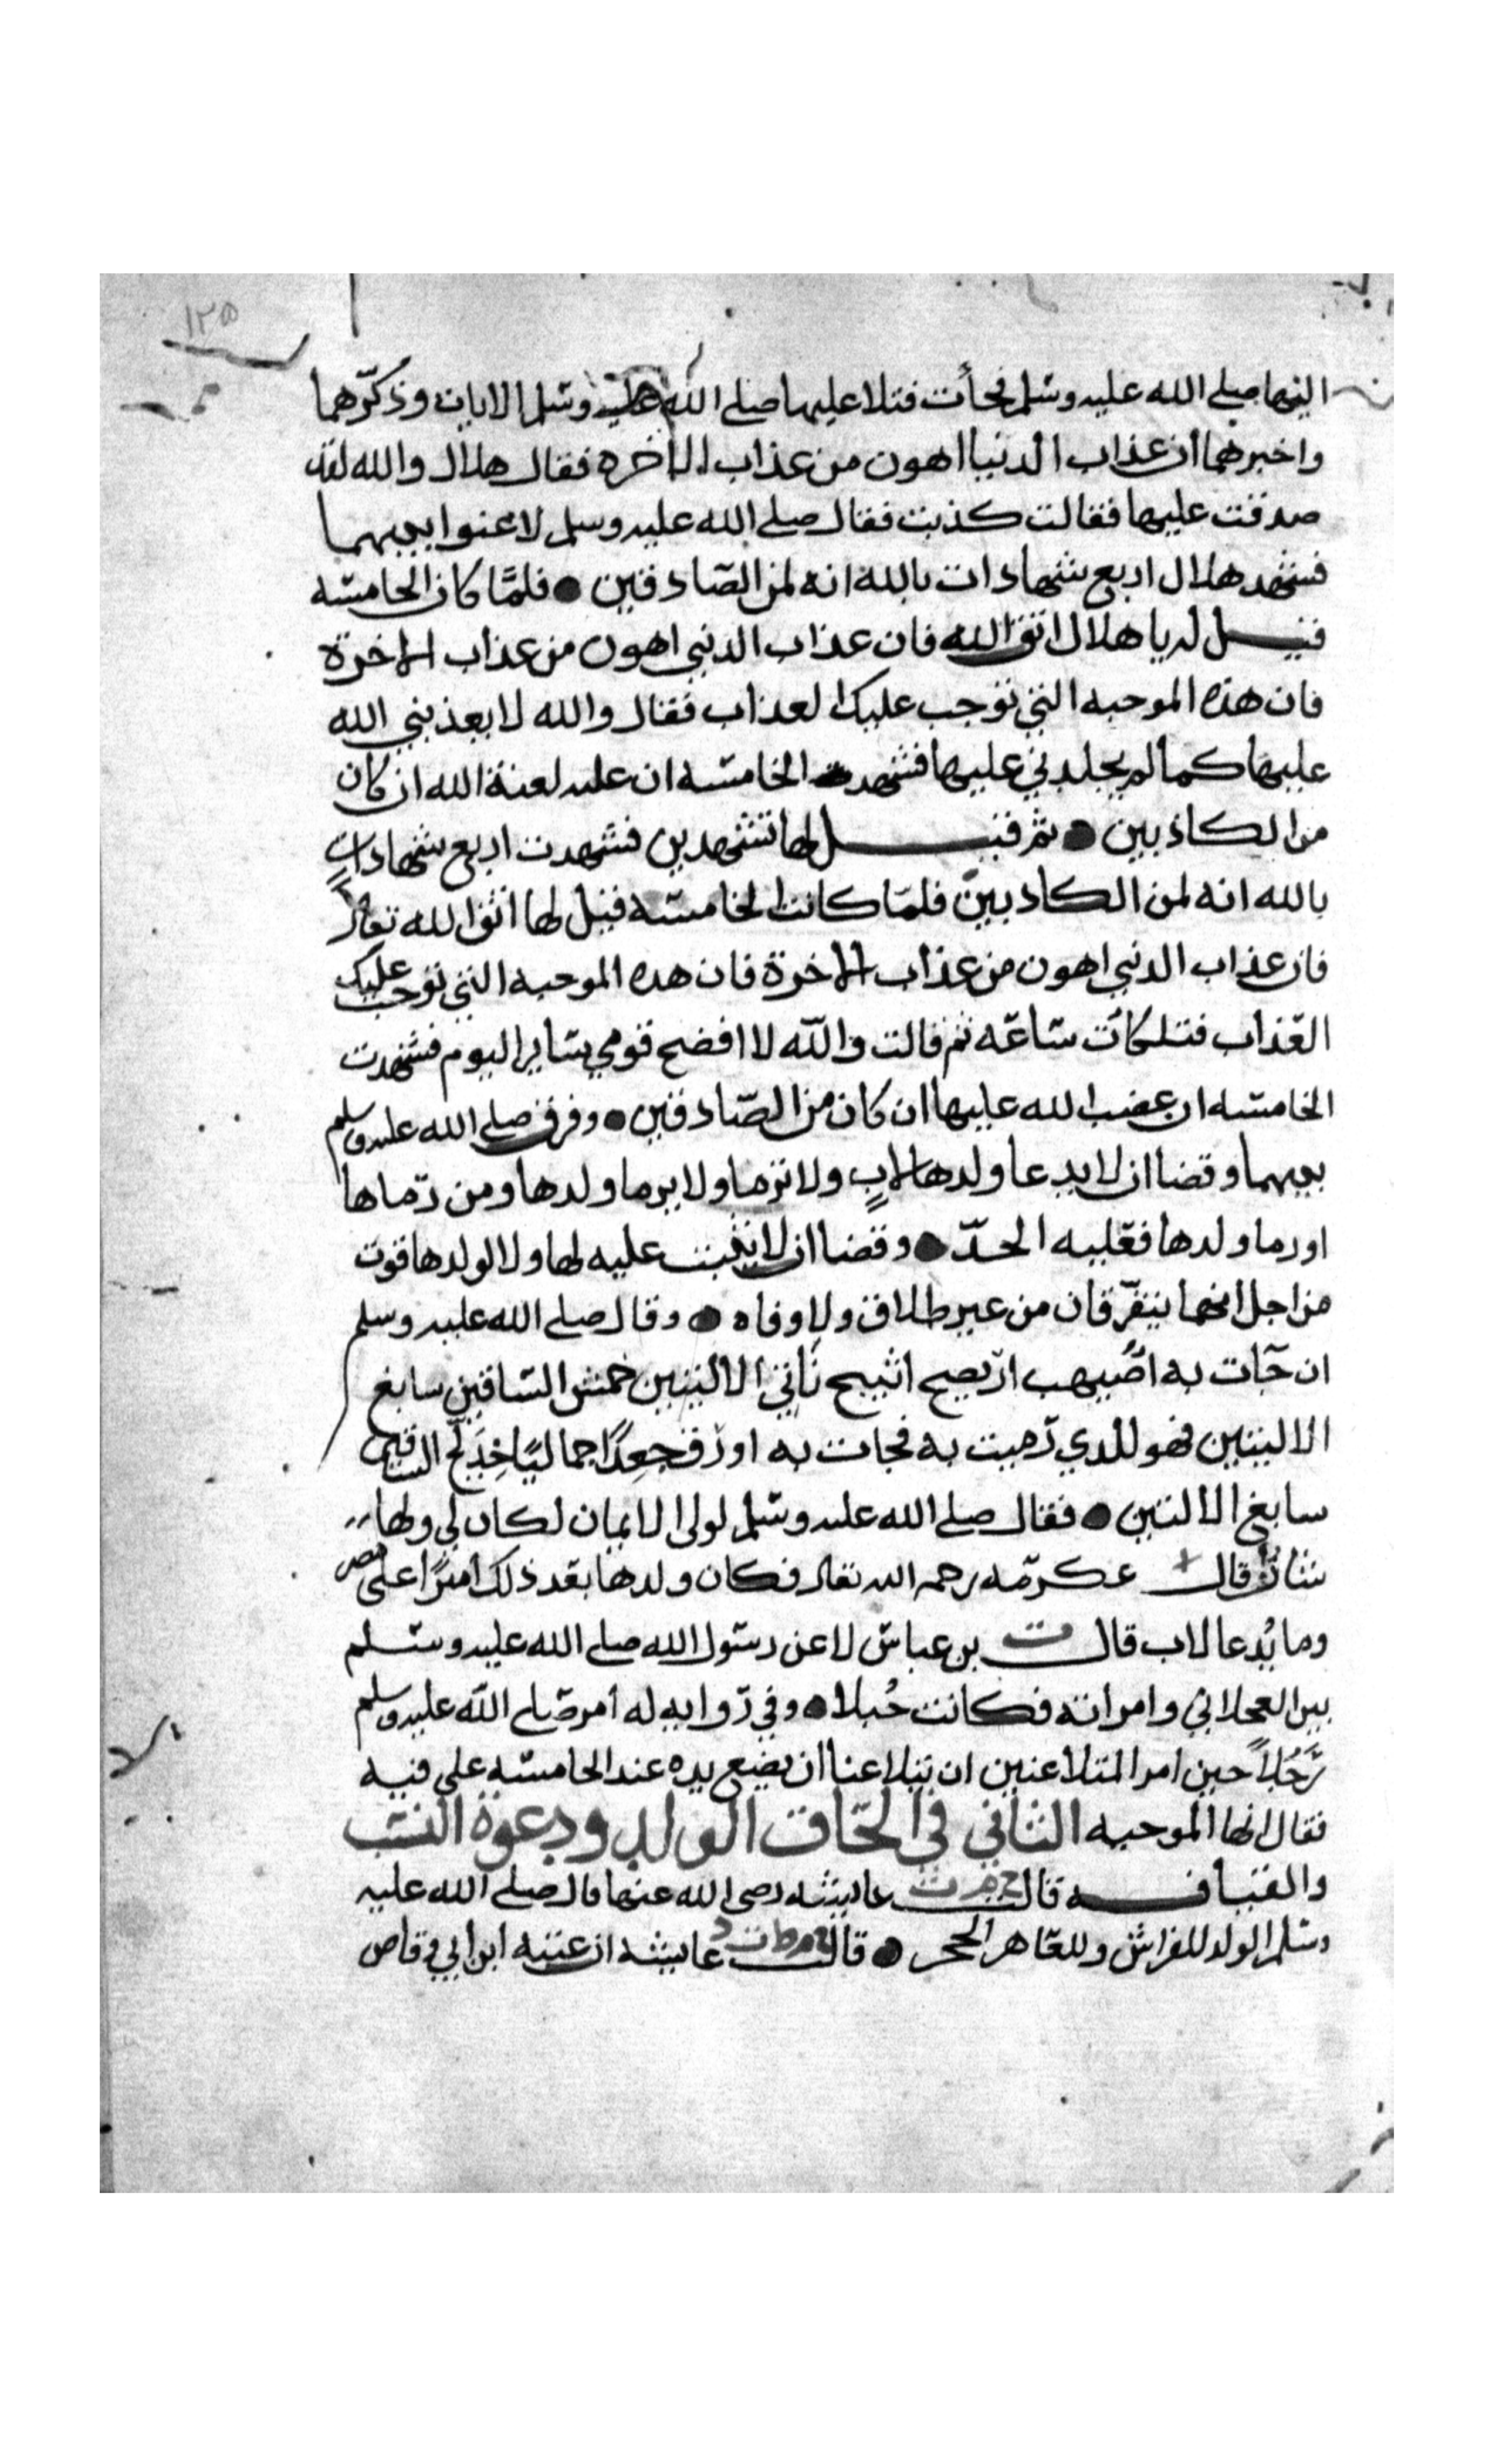 ١٢٥
اليها صلى الله عليه وسلم فجأت فتلا عليهما صلى الله عليه وسلم الايات وذكّرهما
واخبرهما ان عذاب الدنيا اهون من عذاب الاخره فقال هلال والله لقد
صدقت عليها فقالت كذبت فقال صلى الله عليه وسلم لاعنوا بينهما
فشهد هلال اربع شهادات بالله انه لمن الصّادقين ● فلمّا كان الخامسّه
قيل له يا هلال اتق الله فان عذاب الدنيى اهون من عذاب الاخرة
فان هذه الموجبه التي توجب عليك العذاب فقال والله لا يعذبني الله
عليها كما لم يجلدني عليها فشهد الخامسّه ان عليه لعنة الله ان كان
من الكاذبين ● ثم قيل لها تشهدين فشهدت اربع شهاداتٍ
بالله انه لمن الكاذبين فلمّا كانت الخامسّه قيل لها اتق الله تعالى
فان عذاب الدنيى اهون من عذاب الاخرة فان هذه الموجبه التي توجب عليك
العّذاب فتلكأت سّاعّه ثم قالت والله لا افضح قومي سّاير اليوم فشهدت
الخامسّه ان غضب الله عليها ان كان من الصّادقين ● وفرق صلى الله عليه وسلم
بينهما وقضا ان لا يدعا ولدها لابٍ ولا ترما ولا يرما ولدها ومن رّماها
او رما ولدها فعّليه الحدّ ● وقضا ان لا يثبت عليه لها ولا لولدها قوت
من اجل انهما يتفرّقان من غير طلاق ولا وفاه ● وقال صلى الله عليه وسلم
ان جّات به اصّيهب ارّيصح اثيبج نّاتئ الاليتين حمش السّاقين سابغ
الاليتين فهو للذي رّميت به فجات به اورّق جعدًا جماليًا خِدَلّج الساقين
سابغ الاليتين ● فقال صلى الله عليه وسّلم لولى الايمان لكان لي ولها
شّان قال عكرمّه رحمه الله تعالى فكان ولدها بعّد ذلك اميرًا على مصر
وما يُدعا لاب قال ت بن عباسّ لاعن رسّول الله صلى الله عليه وسّلم
بين العجلاني وامراته فكانت حُبلا ● وفي رّوايه له امر صّلى الله عليه وسلم
رّجُلاً حين امر المتلاعنين ان يتلاعنا ان يضع يده عند الخامسّه على فيه
فقال انها الموجبه الثاني في الحّاق الولد ودعوة النسّب
والقيافه قالت خ م ت عايشه رضي الله عنها قال صلى الله عليه
وسّلم الولد للفراش وللعّاهر الحجر ● قالت خ م ط ت د عايشه ان عتبه ابن ابي وقاص